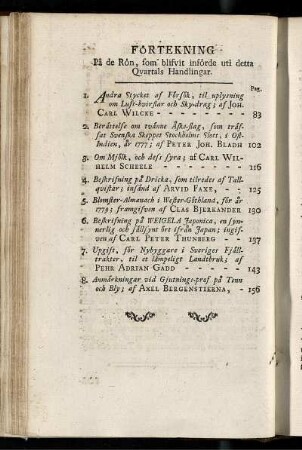 FÖRTEKNING
På de Rön, som blifvit införde uti detta
Qvartals Handlingar.
Pag.
1. Andra Stycket af Försök, til uplysning
om Luft-hvirflar och Skydrag; af JOH.
CARL WILCKE - - - - - - 83
2. Berättelse om tvänne Åske-slag, som träf-
fat Svenska Skeppet Stockholms Slott, i Ost-
Indien, år 1777; af PETER JOH. BLADH 102
3. Om Mjölk, och dess syra; af CARL WIL-
HELM SCHEELE - - - - - - 116
4. Beskrifning på Dricka, som tilredes af Tall-
qvistar; insänd af ARVID FAXE, - - 125
5. Blomster-Almanach i Wester-Göthland, för år
1779; framgifven af CLAS BJERKANDER 130
6. Beskrifning på WEIGELA Japonica, en syn-
nerlig och sällsynt ört ifrån Japan; ingif-
ven af CARL PETER THUNBERG - - 137
7. Upgift, för Nybyggare i Sveriges Fjäll-
trakter, til et lämpeligt Landtbruk; af
PEHR ADRIAN GADD - - - - - 143
8. Anmärkningar vid Gjutnings-prof på Tenn
och Bly; af AXEL BERGENSTIERNA, - 156